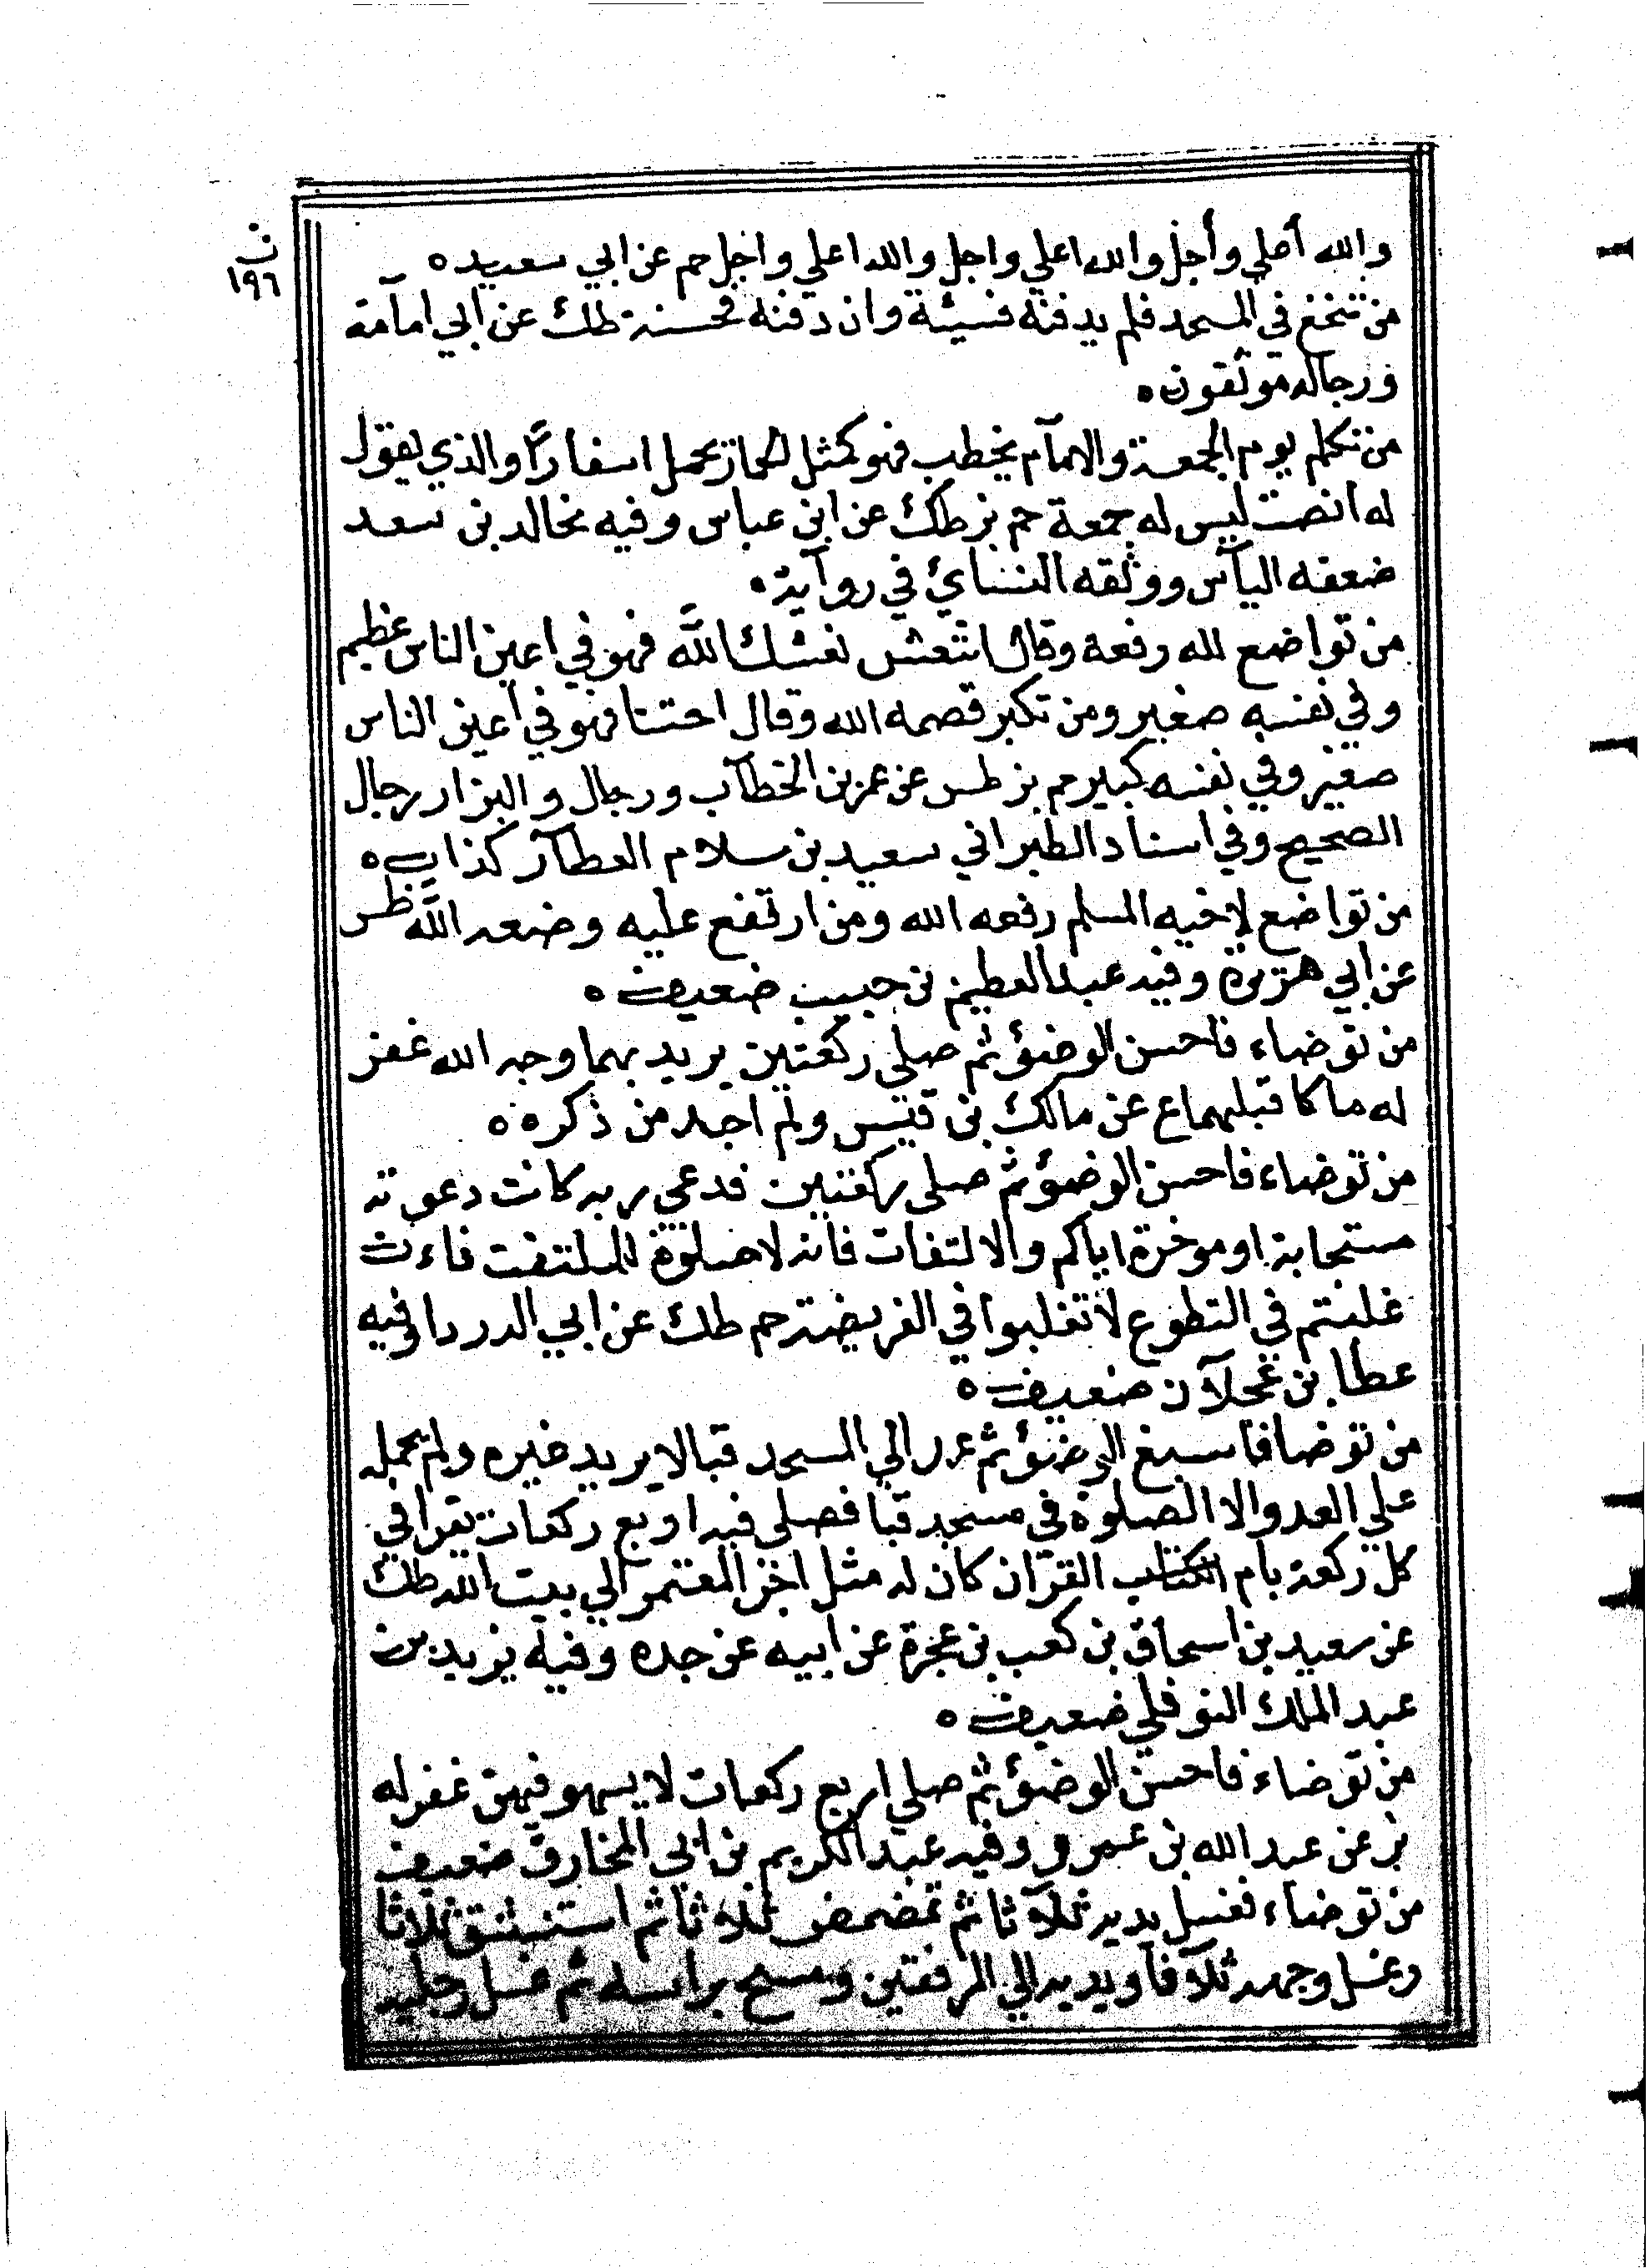 والله أعلي وأجل والله اعلي واجل والله اعلي واجل حم عن ابي سعيد ه
من تنخع في المسجد فلم يدفنه فسيئة وان دفنه فحسنة طك عن ابي امامة
ورجاله موثقون ه
من تكلم يوم الجمعة والامام يخطب فهو كمثل الحمار يحمل اسفارا والذي يقول
له انصت ليس له جمعة حم بز طك عن ابن عباس وفيه مخالد بن سعد
ضعفه الياس ووثقه النسائي في رواية ه
من تواضع لله رفعه وقال انتعش نعشك الله فهو في اعين الناس عظيم
وفي نفسه صغير ومن تكبر قصمه الله وقال اخسا فهو في اعين الناس
صغير وفي نفسه كبير حم بز طس عن عمر بن الخطاب ورجال والبزار رجال
الصحيح وفي اسناد الطبراني سعيد بن سلام العطار كذاب ه
من تواضع لاخيه المسلم رفعه الله ومن ارتفع عليه وضعه الله طس
عن ابي هريرة وفيه عبد العظيم بن حبيب ضعيف ه
من توضاء فاحسن الوضؤ ثم صلي ركعتين يريد بهما وجه الله غفر
له ما كا قبلهما ع عن مالك بن قيس ولم اجد من ذكره ه
من توضاء فاحسن الوضؤ ثم صلى ركعتين فدعي ربه كانت دعوته
مستجابة او موخرة اياكم والالتفات فانه لا صلوة للملتفت فاءن
غلبتم في التطوع لا تغلبوا في الفريضة حم طك عن ابي الدردا وفيه
عطا بن عجلان ضعيف ه
من توضا فاسبغ الوضؤ ثم عمد الي المسجد قبا لا يريد غيره ولم يحمله
علي الغدو الا الصلوة في مسجد قبا فصلى فيه اربع ركعات يقرا في
كل ركعة بام الكتاب القران كان له مثل اجر المعتمر الي بيت الله طك
عن سعيد بن اسحاق بن كعب بن عجرة عن ابيه عن جده وفيه يزيد بن
عبد الملك النوفلي ضعيف ه
من توضاء فاحسن الوضؤ ثم صلي اربع ركعات لا يسهو فيهن غفر له
بز عن عبد الله بن عمرو وفيه عبد الكريم بن ابي المخارق ضعيف
من توضاء فغسل يديه ثلاثا ثم تمضمض ثلاثا ثم استنشق ثلاثا
وغسل وجهه ثلاثا ويديه الي المرفقين ومسح براسه ثم غسل رجليه
ث
١٩٦